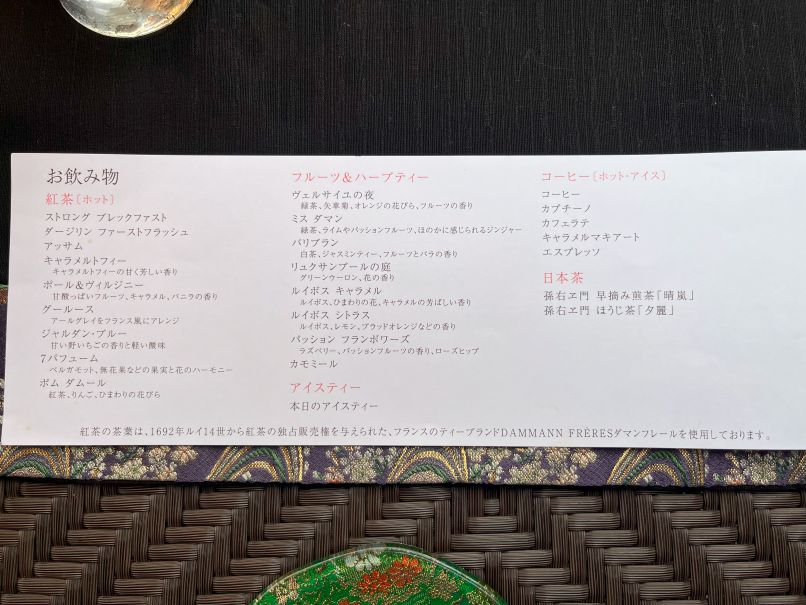 お飲み物
紅茶〔ホット〕
ストロング ブレックファスト
ダージリン ファーストフラッシュ
アッサム
キャラメルトフィー
キャラメルトフィーの甘く芳しい香り
ポール&ヴィルジニー
甘酸っぱいフルーツ、キャラメル、バニラの香り
グールース
アールグレイをフランス風にアレンジ
ジャルダン・ブルー
甘い野いちごの香りと軽い酸味
7パフューム
ベルガモット、無花果などの果実と花のハーモニー
ポム ダムール
紅茶、りんご、ひまわりの花びら
フルーツ&ハーブティー
ヴェルサイユの夜
緑茶、矢車菊、オレンジの花びら、フルーツの香り
ミス ダマン
緑茶、ライムやパッションフルーツ、ほのかに感じられるジンジャー
バリブラン
白茶、ジャスミンティー、フルーツとバラの香り
リュクサンブールの庭
グリーンウーロン、花の香り
ルイボス キャラメル
ルイボス、ひまわりの花、キャラメルの芳ばしい香り
ルイボス シトラス
ルイボス、レモン、ブラッドオレンジなどの香り
パッション フランボワーズ
ラズベリー、パッションフルーツの香り、ローズヒップ
カモミール
アイスティー
本日のアイスティー
コーヒー〔ホット・アイス〕
コーヒー
カプチーノ
カフェラテ
キャラメルマキアート
エスプレッソ
日本茶
孫右ヱ門 早摘み煎茶「晴嵐」
孫右ヱ門 ほうじ茶「夕麗」
紅茶の茶葉は、1692年ルイ14世から紅茶の独占販売権を与えられた、フランスのティーブランドDAMMANN FRÈRESダマンフレールを使用しております。